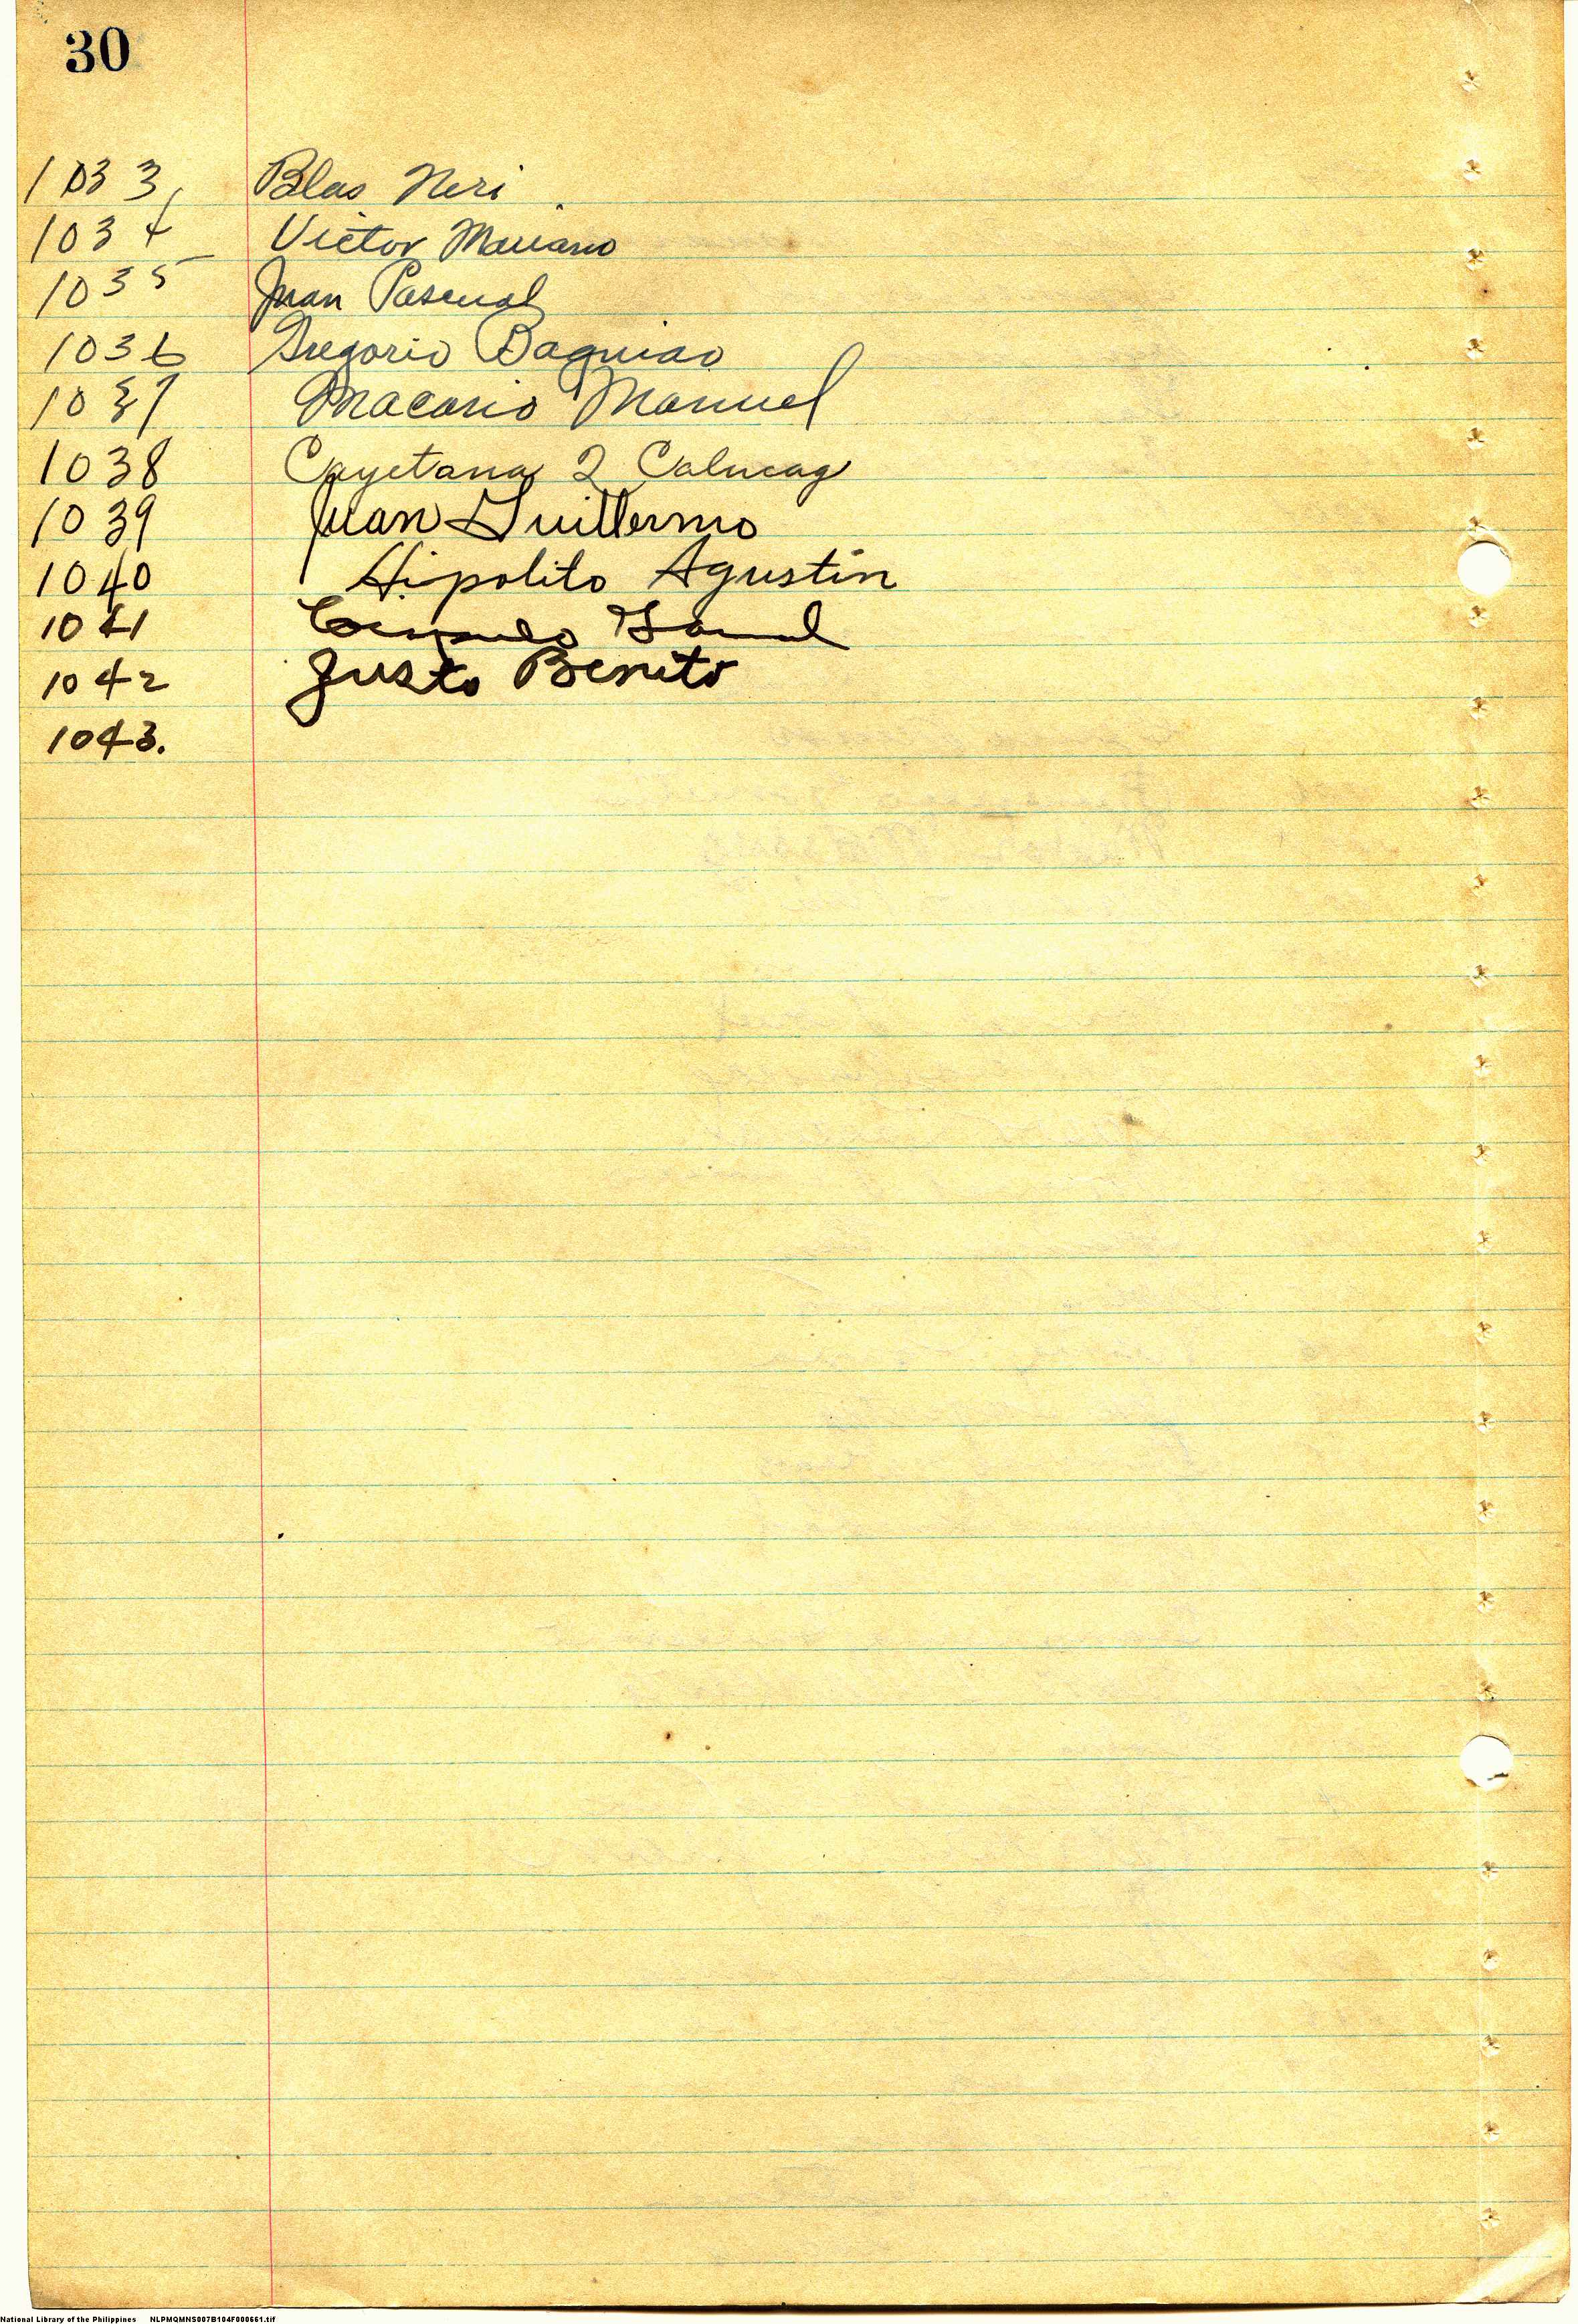 30
1033 Blas Neri
1034 Victor Mariano
1035 Juan Pascual
1036 Gregorio Baguiao
1037 Macario Manuel
1038 Cayetana 2 Calucag
1039 Juan Guillermo
1040 Hipolito Agustin
1041
1042 Justo Benito
1043.
National Library of the Philippines NLPMQMNS007B104F000661.tif